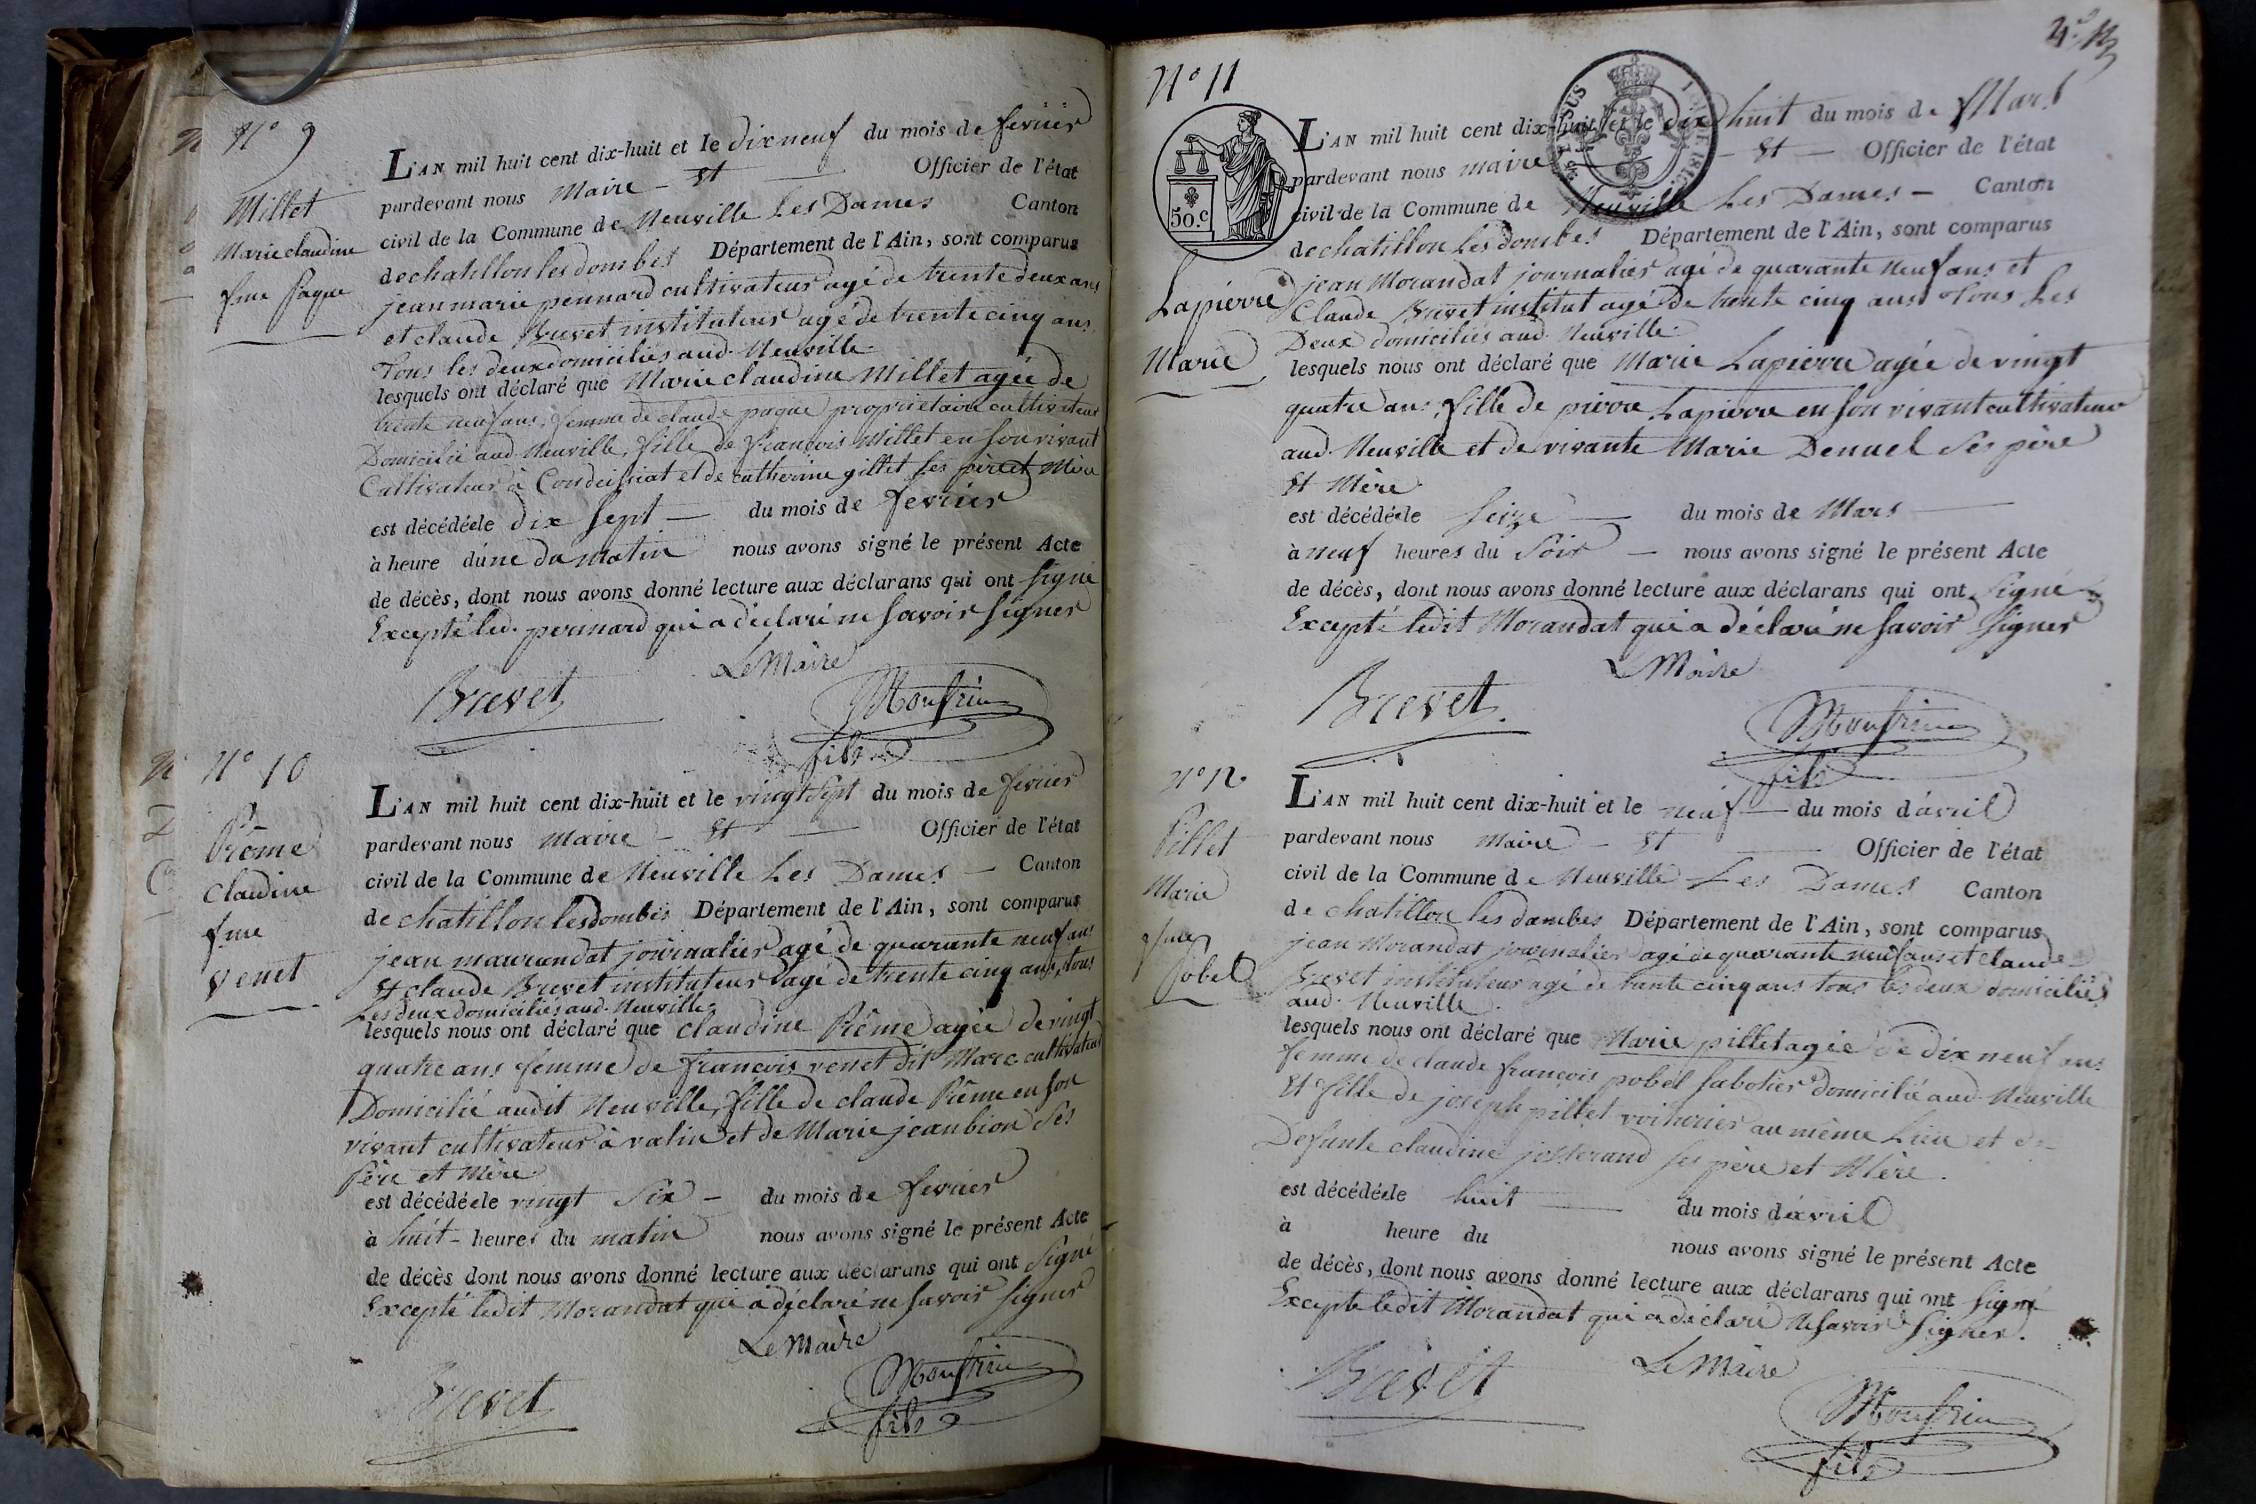 N° 9
Millet
Marie claudine
fme Paque
L'AN mil huit cent dix-huit et le dix neuf du mois de fevrier
pardevant nous Maire - et - Officier de l'état
civil de la Commune de Neuville Les Dames Canton
de chatillon les dombes Département de l'Ain, sont comparus
jean marie pennard cultivateur agé de trente deux ans
et claude Brevet instituteur agé de trente cinq ans
Tous les deux domiciliés aud. Neuville.
lesquels ont déclaré que Marie claudine Millet agée de
trente neuf ans, femme de claude paque proprietaire cultivateur
Domicilié aud Neuville, fille de François Millet en son vivant
Cultivateur à Condeissiat et de catherine gillet ses père et Mère
est décédée le dix sept - du mois de fevrier
à heure d'une du matin nous avons signé le présent Acte
de décès, dont nous avons donné lecture aux déclarans qui ont signé
Excepté led. pennard qui a déclaré ne savoir signer
Le Maire
Brevet
Monfrin
fils
N° 10
Prême
Claudine
fme
Venet
L'AN mil huit cent dix-huit et le vingt sept du mois de fevrier
pardevant nous Maire - et - Officier de l'état
civil de la Commune de Neuville Les Dames - Canton
de chatillon les dombes Département de l'Ain, sont comparus
jean maurandat journalier agé de quarante neuf ans
et claude Brevet instituteur agé de trente cinq ans, tous
Les deux domiciliés aud. Neuville.
lesquels nous ont déclaré que claudine Prême agée de vingt
quatre ans femme de françois venet dit Marc cultivateur
Domicilié audit Neuville, fille de claude Prême en son
vivant cultivateur à vatin et de Marie jeanbion Ses
Père et Mère.
est décédée le vingt Six - du mois de fevrier
à huit - heures du matin nous avons signé le présent Acte
de décès dont nous avons donné lecture aux déclarans qui ont Signé
Excepté ledit Morandat qui a déclaré ne savoir signer
Le Maire
Brevet
Monfrin
fils
N° 11
50.c
Lapierre
Marie
L'AN mil huit cent dix-huit et le dix huit du mois de Mars
pardevant nous maire - et - Officier de l'état
civil de la Commune de Neuville Les Dames - Canton
de chatillon les dombes Département de l'Ain, sont comparus
jean Morandat journalier agé de quarante neuf ans et
Claude Brevet institut agé De trente cinq ans Tous Les
Deux domiciliés aud. Neuville.
lesquels nous ont déclaré que Marie Lapierre agée de vingt
quatre ans, fille de pierre Lapierre en son vivant cultivateur
aud. Neuville et de vivante Marie Denuel Ses père
et Mère
est décédée le Seize - du mois de Mars -
à neuf heures du Soir - nous avons signé le présent Acte
de décès, dont nous avons donné lecture aux déclarans qui ont Signé
Excepté ledit Morandat qui a déclaré ne savoir Signer
Le Maire
Brevet
Monfrin
fils
N° 12
Pillet
Marie
fme
Pobel
L'AN mil huit cent dix-huit et le neuf - du mois d'avril
pardevant nous Maire - et - Officier de l'état
civil de la Commune de Neuville Les Dames Canton
de chatillon les dombes Département de l'Ain, sont comparus
jean Morandat journalier agé de quarante neuf ans et claude
Brevet instituteur agé de trante cinq ans tous les deux domiciliés
aud. Neuville.
lesquels nous ont déclaré que Marie pillet agée de dix neuf ans
femme de claude françois pobel sabotier domicilié aud. Neuville
Et fille de joseph pillet voiturier au même Lieu et de
Defunte claudine josserand ses père et Mère.
est décédée le huit - du mois d'avril
à heure du nous avons signé le présent Acte
de décès, dont nous avons donné lecture aux déclarans qui ont signé
Excepte ledit Morandat qui a déclaré ne savoir Signer.
Le Maire
Brevet
Monfrin
fils